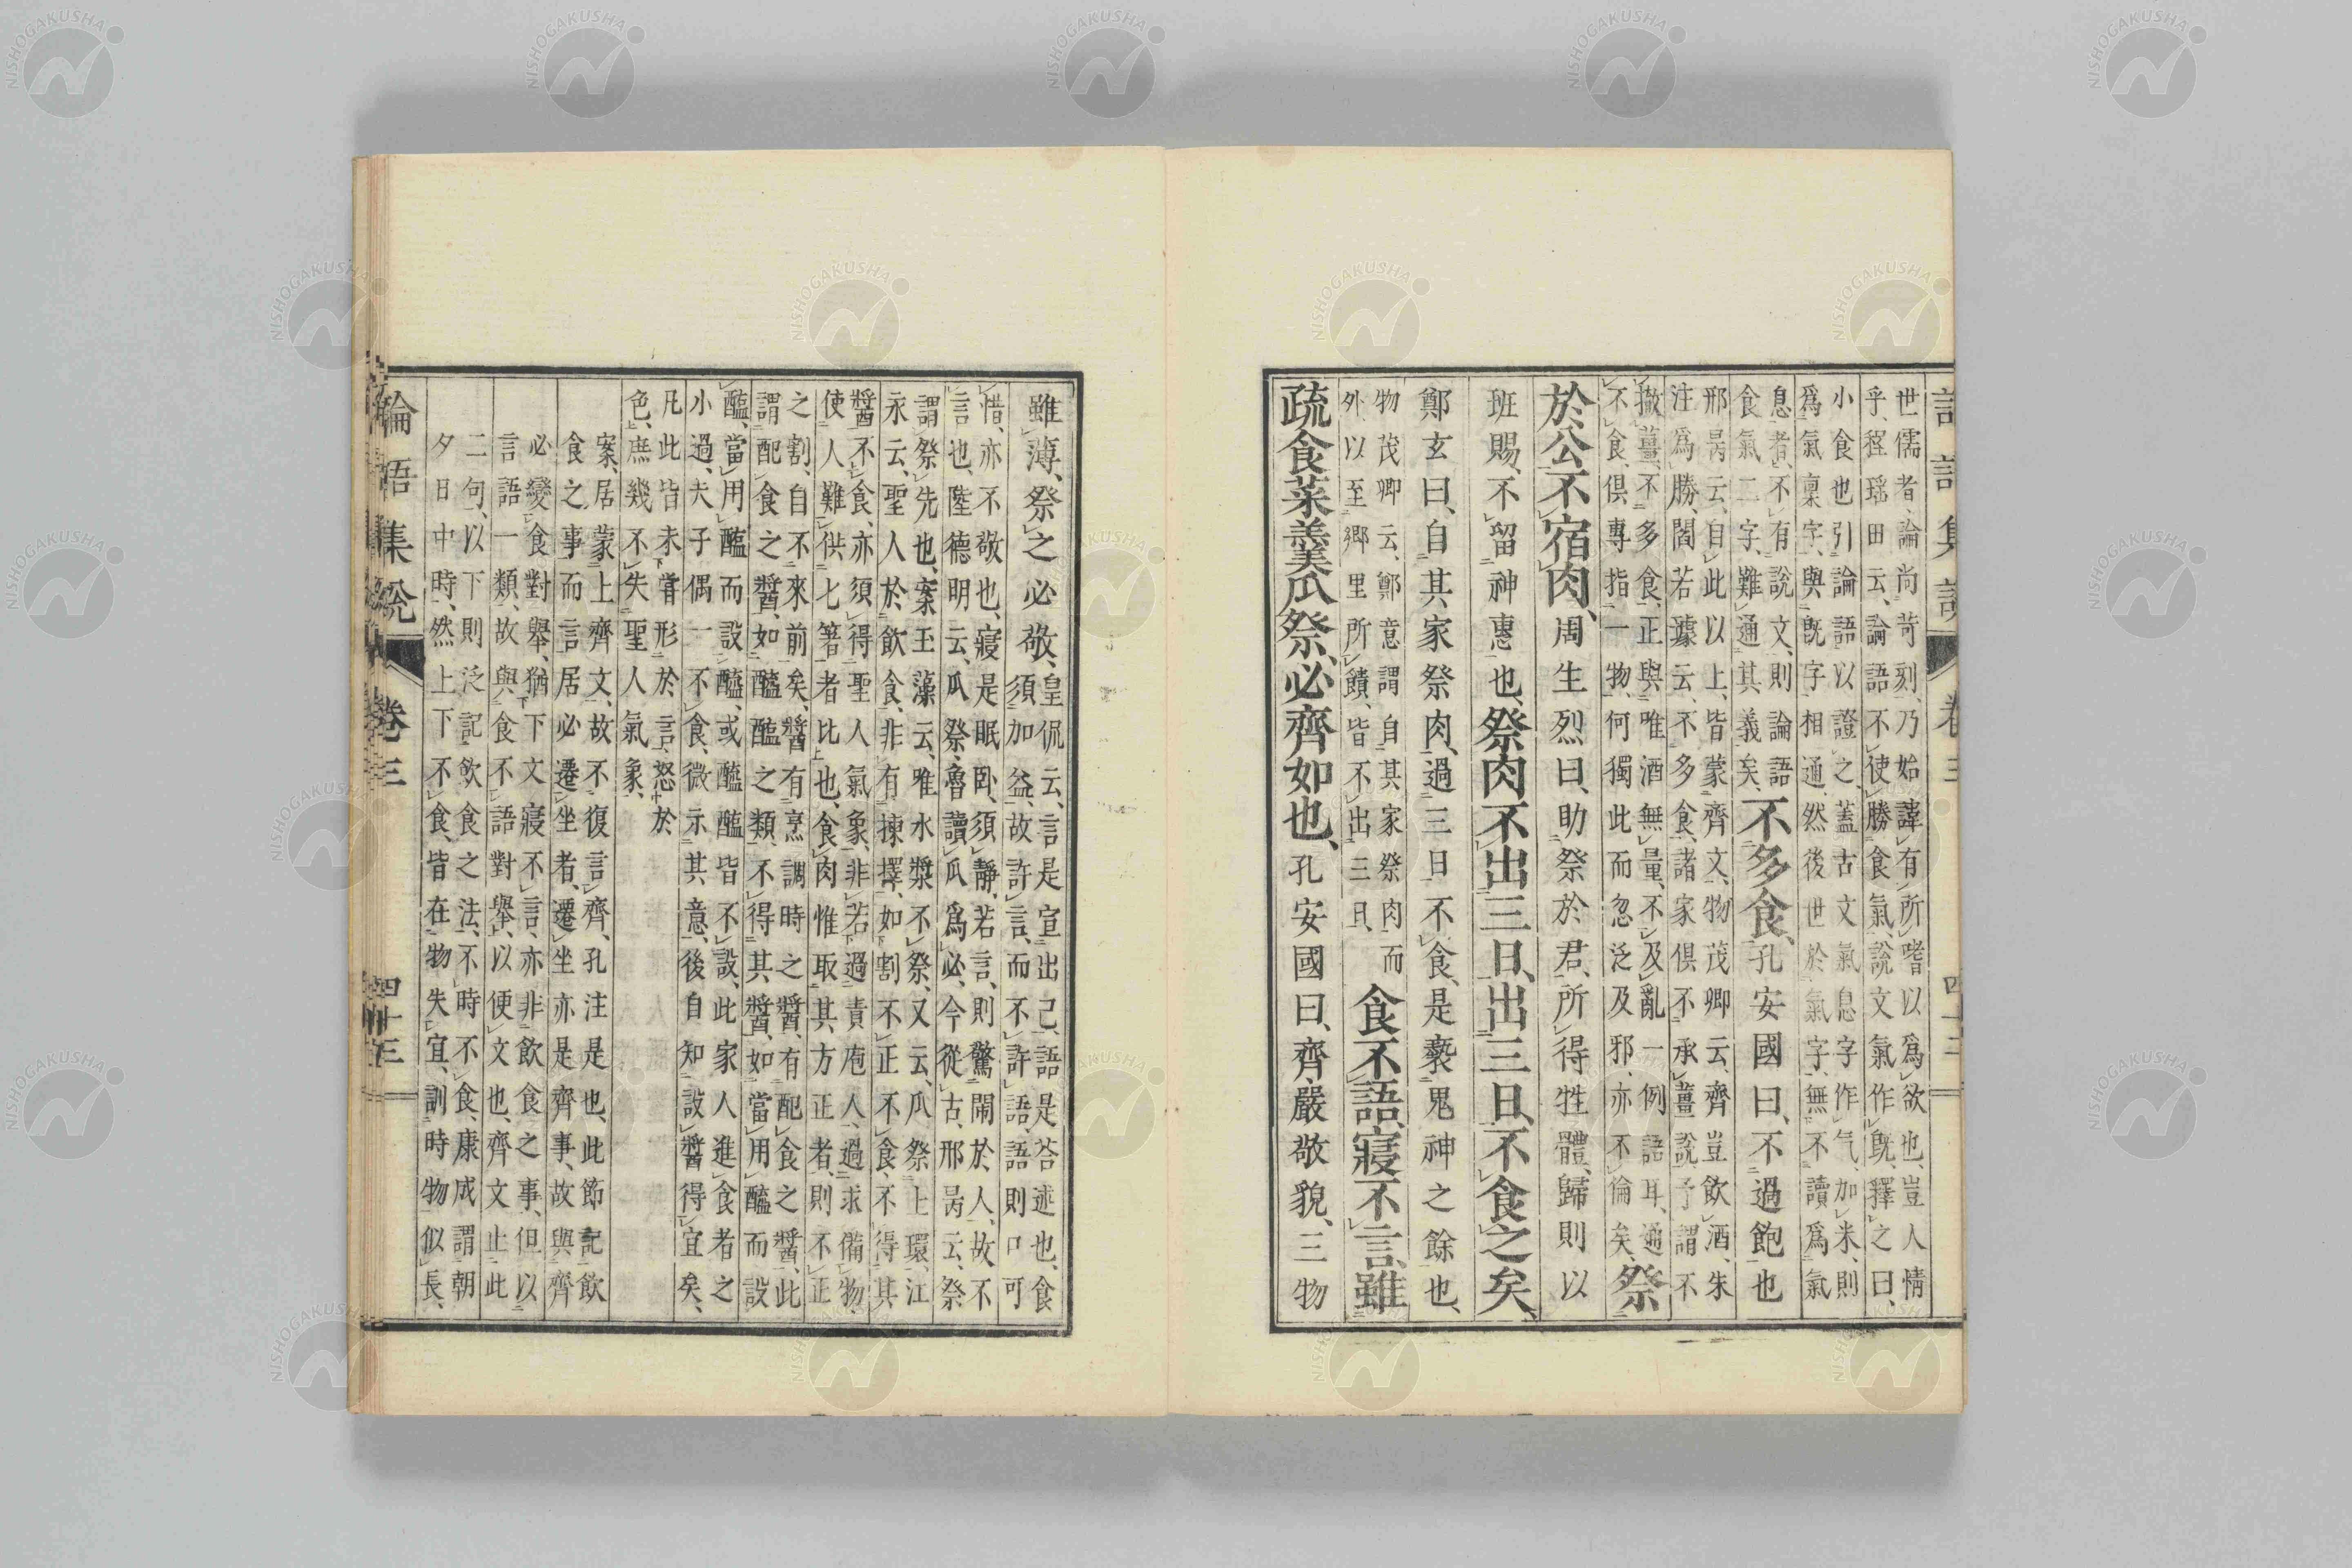 世儒者、論尚苛刻、乃始諱有所嗜以爲欲也、豈人情
乎、程瑶田云、論語不使勝食氣、說文氣作旣、釋之曰、
小食也、引論語以證之、蓋古文氣息字作气、加米、則
爲氣稟字、與旣字相通、然後世於氣字、無不讀爲氣
息者、不有說文、則論語
食氣二字、難通其義矣、
不多食、孔安國曰、不過飽也
邢昺云、自此以上、皆蒙齊文、物茂卿云、齊豈飲酒、朱
注爲勝、閻若璩云、不多食、諸家俱不承薑說、予謂不
撤薑、不多食、正與唯酒無量、不及亂一例語耳、通
不食、俱專指一物、何獨此而忽泛及邪、亦不倫矣、
祭
於公、不宿肉、周生烈曰、助祭於君、所得牲體、歸則以
班賜、不留神惠也、祭肉不出三日、出三日、不食之矣、
鄭玄曰、自其家祭肉、過三日不食、是褻鬼神之餘也、
物茂卿云、鄭意謂自其家祭肉而
外、以至鄉里所饋、皆不出三日、
食不語、寢不言、雖
疏食菜羹瓜祭、必齊如也、孔安國曰、齊、嚴敬貌、三物
雖薄、祭之必敬、
皇侃云、言是宣出己、語是荅述也、食
須加益、故許言、而不許語、語則口可
惜、亦不敬也、寢是眠臥、須靜、若言、則驚鬧於人、故不
言也、陸德明云、瓜祭、魯讀瓜爲必、今從古、邢昺云、祭
謂祭先也、案玉藻云、唯水漿不祭、又云、瓜祭上環、江
永云、聖人於飲食、非有揀擇、如割不正不食、不得其
醬不食、亦須得聖人氣象、非若過責庖人、過求備物、
使人難供七箸者比也、食肉惟取其方正者、則不正
之割、自不來前矣、醬有烹調時之醬、有配食之醬、此
謂配食之醬、如醯醢之類、不得其醬、如當用醯而設
醢、當用醢而設醯、或醯醢皆不設、此家人進食者之
小過、夫子偶一不食、微示其意、後自知設醬得宜矣、
凡此皆未嘗形於言、怒於
色、庶幾不失聖人氣象、
案、居蒙上齊文、故不復言齊、孔注是也、此節記飲
食之事而言居必遷坐者、遷坐亦是齊事、故與齊
必變食對舉、猶下文寢不言、亦非飲食之事、但以
言語一類、故與食不語對舉、以便文也、齊文止此
二句、以下則泛記飲食之法、不時不食、康成謂朝
夕日中時、然上下不食、皆在物失宜、訓時物似長、
論語集說
卷三
四十三